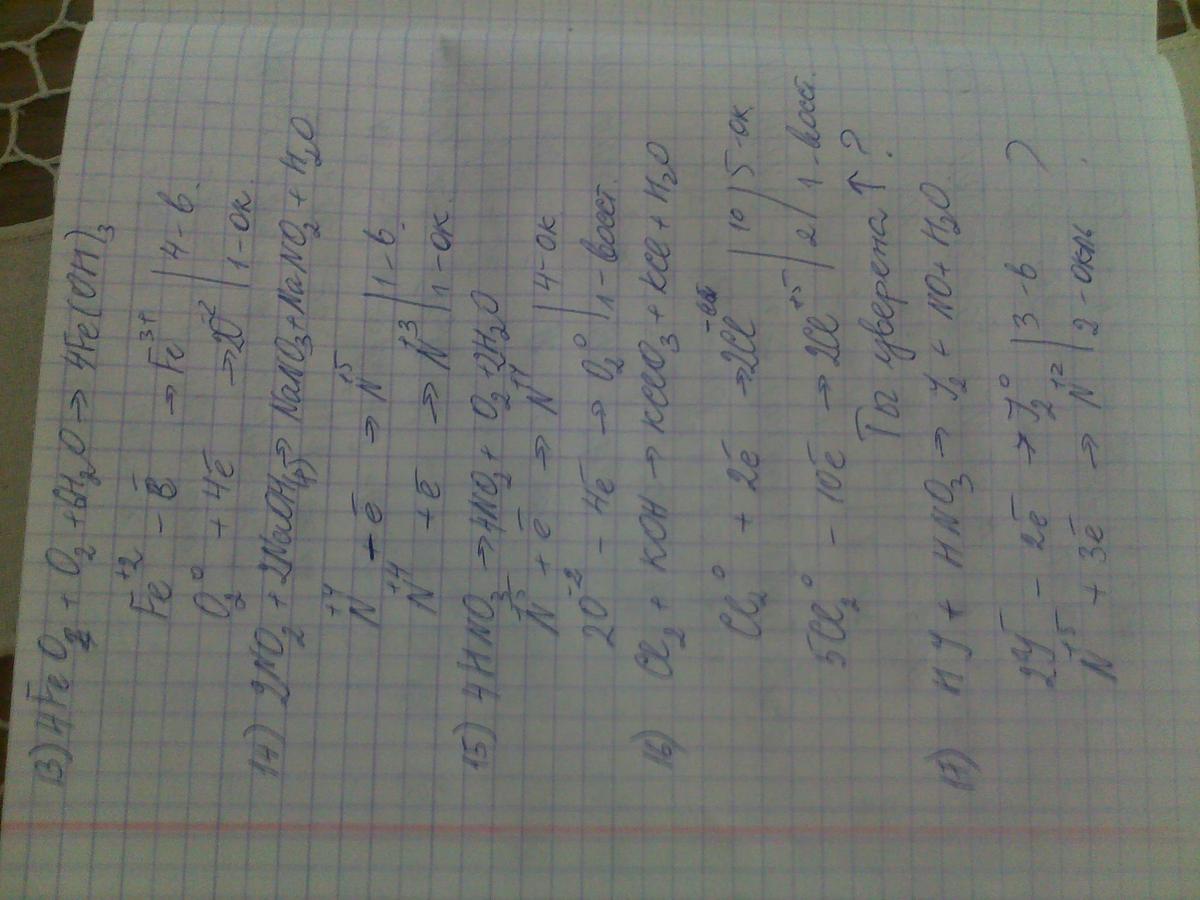 13) 4FeO + O₂ + 6H₂O → 4Fe(OH)₃
Fe⁺² - ē → Fe³⁺ | 4 - в.
O₂⁰ + 4ē → 2O⁻² | 1 - ок.
14) 2NO₂ + 2NaOH → NaNO₃ + NaNO₂ + H₂O
N⁺⁴ - ē → N⁺⁵ | 1 - в.
N⁺⁴ + ē → N⁺³ | 1 - ок.
15) 4HNO₃ → 4NO₂ + O₂ + 2H₂O
N⁺⁵ + ē → N⁺⁴ | 4 - ок
2O⁻² - 4ē → O₂⁰ | 1 - восст.
16) Cl₂ + KOH → KClO₃ + KCl + H₂O
Cl₂⁰ + 2ē → 2Cl⁻ | 10 | 5 - ок
5Cl₂⁰ - 10ē → 2Cl⁺⁵ | 2 | 1 - восст.
Ты уверена ↑ ?
17) HJ + HNO₃ → J₂ + NO + H₂O
2J⁻ - 2ē → J₂⁰ | 3 - в
N⁺⁵ + 3ē → N⁺² | 2 - окль